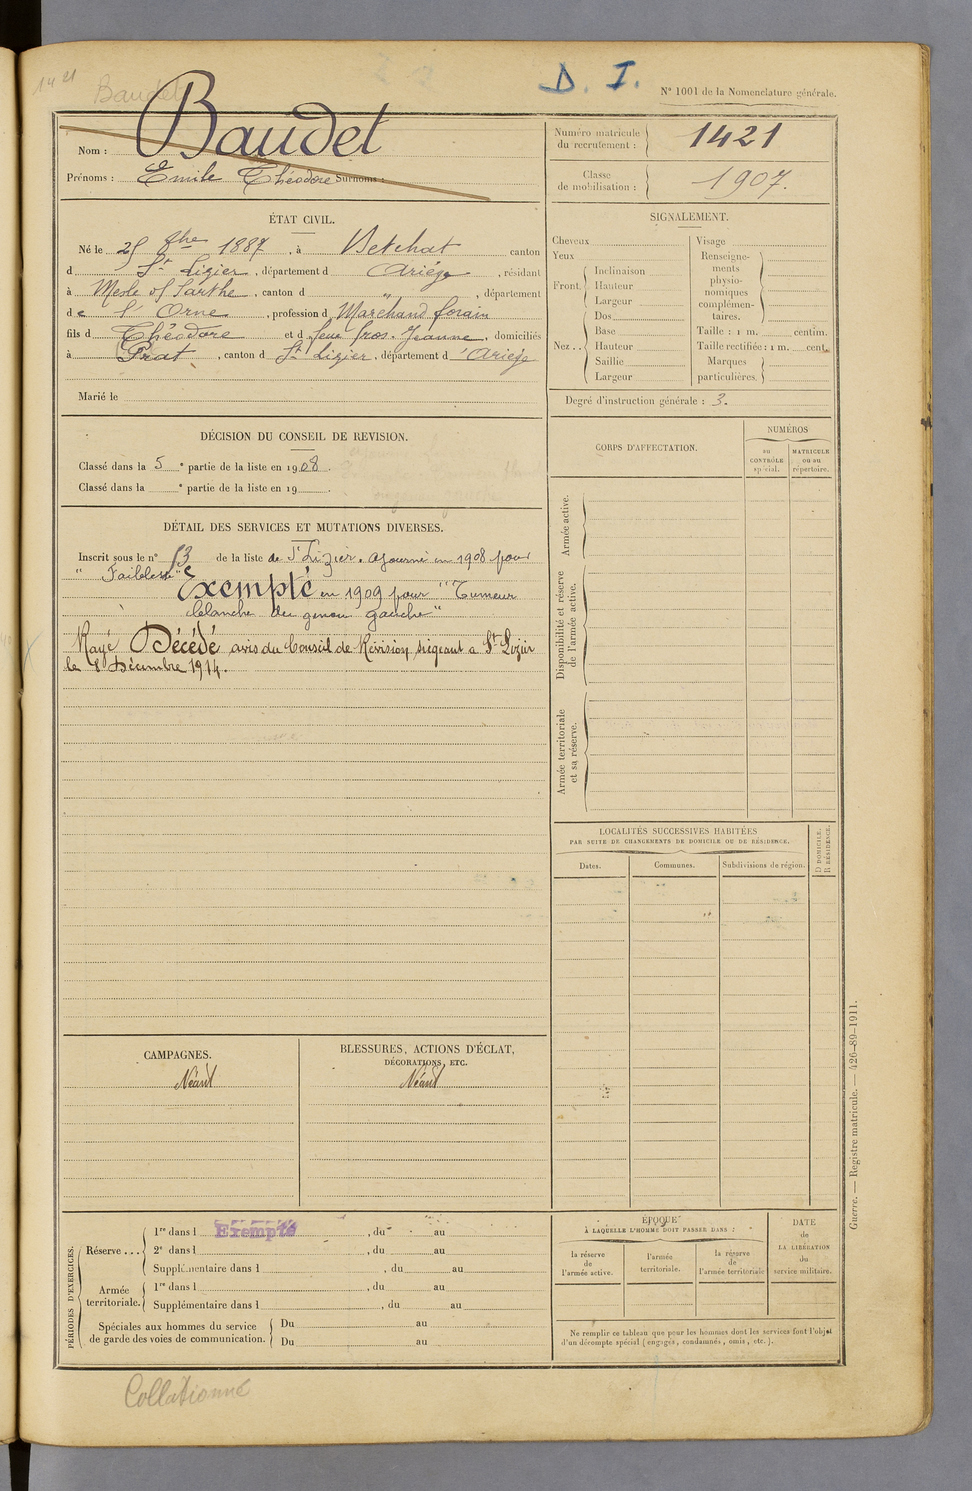 1421
Baudet
D. I.
N° 1001 de la Nomenclature générale.
Nom : Baudet
Prénoms : Emile Théodore Surnoms :
Numéro matricule du recrutement : 1421
Classe de mobilisation : 1907.
ÉTAT CIVIL.
Né le 25 8bre 1887, à Betchat canton
d St Lizier, département d Ariège, résidant
à Mesle s/ Sarthe, canton d ", département
de l'Orne, profession d Marchand forain
fils d Théodore et d feue Gros. Jeanne, domiciliés
à Prat, canton d St Lizier, département d'Ariège
Marié le
SIGNALEMENT.
Cheveux
Yeux
Front. Inclinaison
Hauteur
Largeur
Nez.. Dos
Base
Hauteur
Saillie
Largeur
Visage
Renseignements physionomiques complémentaires.
Taille : 1 m. centim.
Taille rectifiée : 1 m. cent.
Marques particulières.
Degré d'instruction générale : 3.
DÉCISION DU CONSEIL DE REVISION.
Classé dans la 5e partie de la liste en 1908.
Classé dans la e partie de la liste en 19 .
CORPS D'AFFECTATION.
NUMÉROS
au CONTRÔLE spécial.
MATRICULE ou au répertoire.
Armée active.
Disponibilité et réserve de l'armée active.
Armée territoriale et sa réserve.
DÉTAIL DES SERVICES ET MUTATIONS DIVERSES.
Inscrit sous le n° 53 de la liste de St Lizier. Ajourné en 1908 pour
" Faiblesse" Exempté en 1909 pour "Tumeur
blanche du genou gauche"
Rayé Décédé avis du Conseil de Révision siégeant à St Lizier
le 8 Décembre 1914.
LOCALITÉS SUCCESSIVES HABITÉES
PAR SUITE DE CHANGEMENTS DE DOMICILE OU DE RÉSIDENCE.
Dates.
Communes.
Subdivisions de région.
D DOMICILE.
R RÉSIDENCE.
CAMPAGNES.
Néant
BLESSURES, ACTIONS D'ÉCLAT,
DÉCORATIONS, ETC.
Néant
PÉRIODES D'EXERCICES.
Réserve ... 1re dans l Exempté, du au
2e dans l , du au
Supplémentaire dans l , du au
Armée territoriale. 1re dans l , du au
Supplémentaire dans l , du au
Spéciales aux hommes du service de garde des voies de communication. Du au
Du au
ÉPOQUE
À LAQUELLE L'HOMME DOIT PASSER DANS :
la réserve de l'armée active.
l'armée territoriale.
la réserve de l'armée territoriale
DATE de LA LIBÉRATION du service militaire.
Ne remplir ce tableau que pour les hommes dont les services font l'objet
d'un décompte spécial (engagés, condamnés, omis, etc.).
Guerre. — Registre matricule. — 426-89-1911.
Collationné